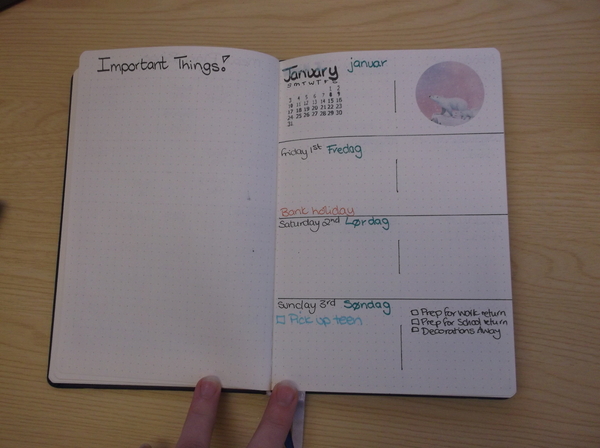 Important Things!
January januar
S M T W T F S
1 2
3 4 5 6 7 8 9
10 11 12 13 14 15 16
17 18 19 20 21 22 23
24 25 26 27 28 29 30
31
Friday 1st Fredag
Bank holiday
Saturday 2nd Lørdag
Sunday 3rd Søndag
Pick up teen
Prep for work return
Prep for School return
Decorations Away